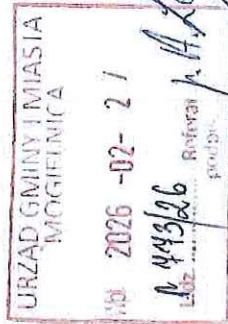 URZĄD GMINY I MIASTA
MOGIELNICA
Wpł. 2026 -02- 2
L.dz. 743/26 Referat
podpis